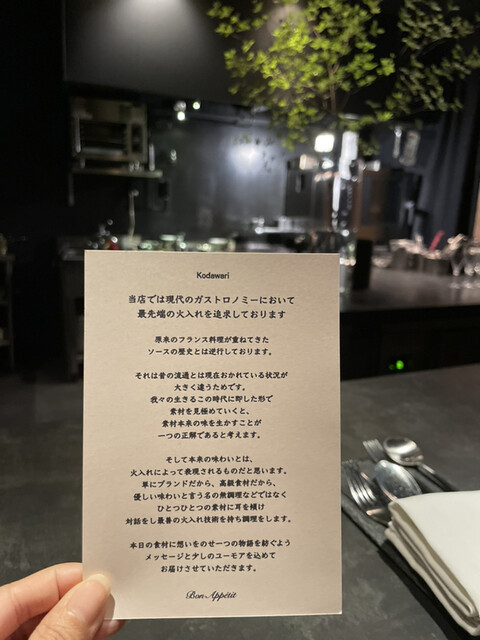 Kodawari
当店では現代のガストロノミーにおいて
最先端の火入れを追求しております
原来のフランス料理が重ねてきた
ソースの歴史とは逆行しております。
それは昔の流通とは現在おかれている状況が
大きく違うためです。
我々の生きるこの時代に即した形で
素材を見極めていくと、
素材本来の味を生かすことが
一つの正解であると考えます。
そして本来の味わいとは、
火入れによって表現されるものだと思います。
単にブランドだから、高級食材だから、
優しい味わいと言う名の無調理などではなく
ひとつひとつの素材に耳を傾け
対話をし最善の火入れ技術を持ち調理をします。
本日の食材に想いをのせ一つの物語を紡ぐよう
メッセージと少しのユーモアを込めて
お届けさせていただきます。
Bon Appétit